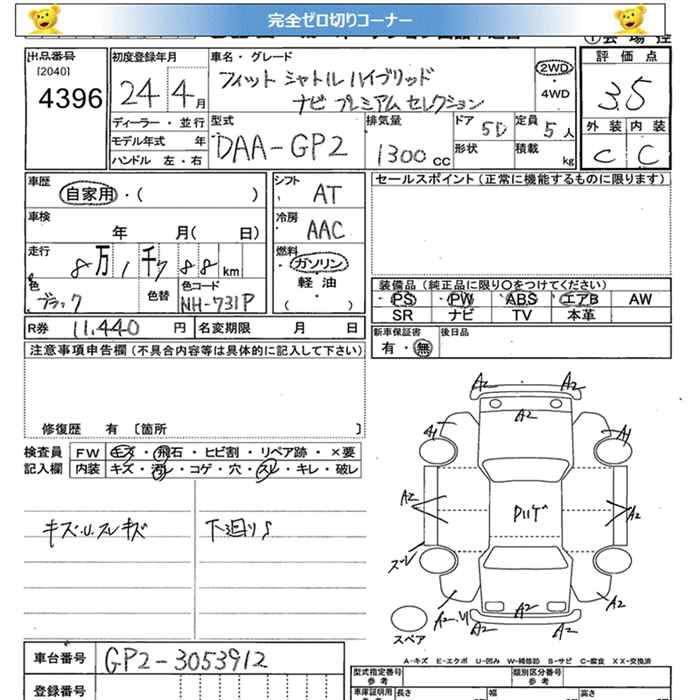 完全ゼロ切りコーナー
出品番号
[2040]
4396
初度登録年月
24 4月
車名・グレード
フィット シャトル ハイブリッド
ナビ プレミアム セレクション
2WD
4WD
評価点
3.5
外装 内装
C C
ディーラー・並行
モデル年式 年
ハンドル 左・右
型式
DAA-GP2
排気量
1300cc
ドア
5D
定員
5人
形状
積載
kg
車歴
自家用・( )
シフト
AT
セールスポイント(正常に機能するものに限ります)
車検
年 月( 日)
冷房
AAC
走行
8万1千788km
燃料
ガソリン
軽油
( )
色
ブラック
色替
色コード
NH-731P
装備品(純正品に限り〇をつけてください)
PS PW ABS エアB AW
SR ナビ TV 本革
R券 11,440円
名変期限 月 日
新車保証書
有・無
後日品
注意事項申告欄(不具合内容等は具体的に記入して下さい)
修復歴 有 〔箇所 〕
検査員
記入欄
FW キズ・飛石・ヒビ割・リペア跡・×要
内装 キズ・汚レ・コゲ・穴・スレ・キレ・破レ
キズ・U・スレキズ
下廻りS
A2 A2
A2
A1 A1
A2 A2
ズレ
A2・U A2 A2
A2 A2
スペア
A-キズ E-エクボ U-凹み W-補修跡 S-サビ C-腐食 XX-交換済
車台番号 GP2-3053912
登録番号
型式指定番号
参考
類別区分番号
参考
車庫証明用
参考
長さ
幅
高さ